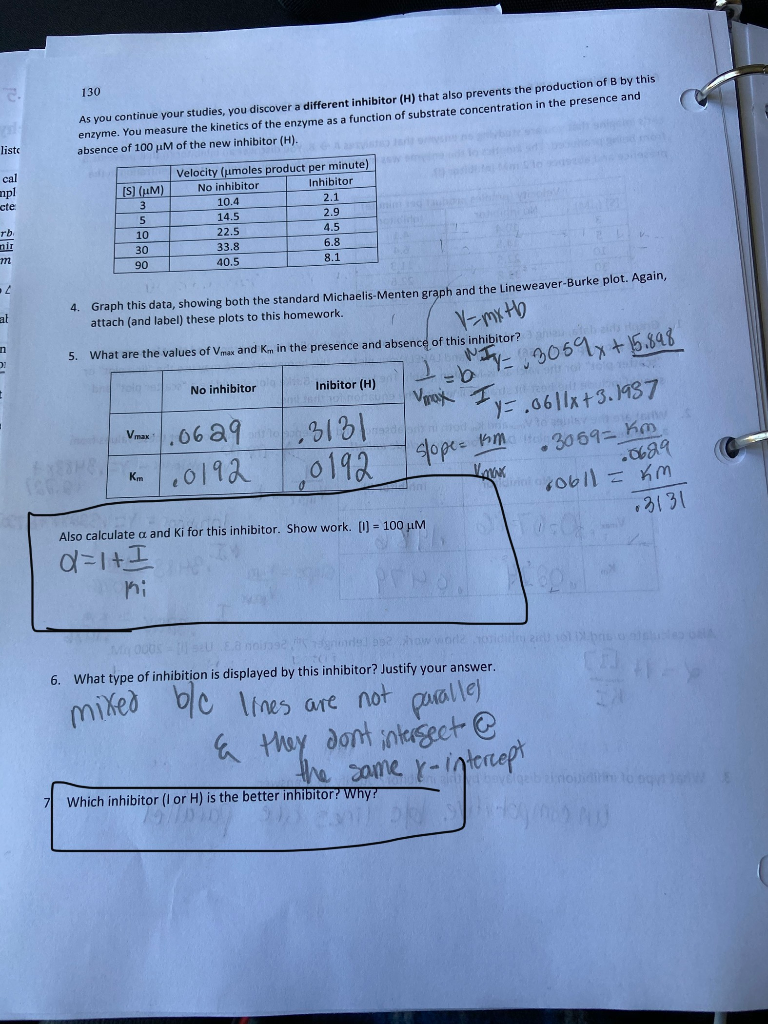 130
As you continue your studies, you discover a different inhibitor (H) that also prevents the production of B by this
enzyme. You measure the kinetics of the enzyme as a function of substrate concentration in the presence and
absence of 100 µM of the new inhibitor (H).
Velocity (µmoles product per minute)
[S] (µM) No inhibitor Inhibitor
3 10.4 2.1
5 14.5 2.9
10 22.5 4.5
30 33.8 6.8
90 40.5 8.1
4. Graph this data, showing both the standard Michaelis-Menten graph and the Lineweaver-Burke plot. Again,
attach (and label) these plots to this homework.
y=mx+b
5. What are the values of Vmax and Km in the presence and absence of this inhibitor?
No inhibitor Inibitor (H)
Vmax .0629 .3131
Km .0192 .0192
1/Vmax = b
NI y= .3059x+15.898
I y= .0611x+3.1937
slope= Km/Vmax
.3059= Km/.0629
.0611 = Km/.3131
Also calculate α and Ki for this inhibitor. Show work. [I] = 100 µM
α=1+I/Ki
6. What type of inhibition is displayed by this inhibitor? Justify your answer.
mixed b/c lines are not parallel
& they dont intersect @
the same x-intercept
7 Which inhibitor (I or H) is the better inhibitor? Why?